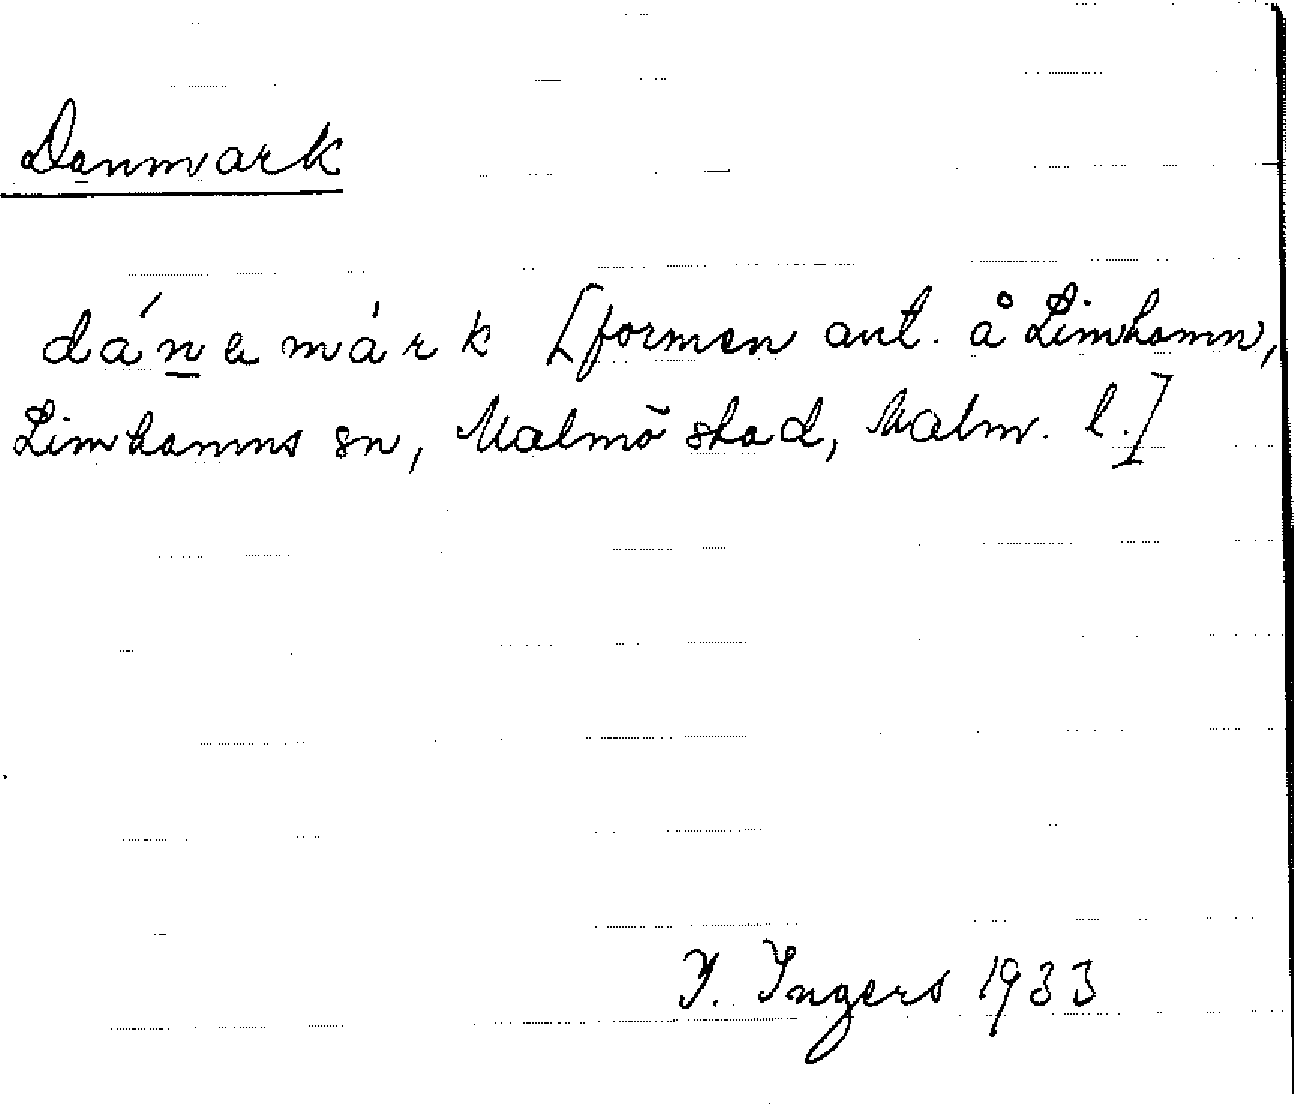 Danmark
dánamárk [formen ant. å Limhamn,
Limhamns sn, Malmö stad, Malm. l.]
I. Ingers 1933